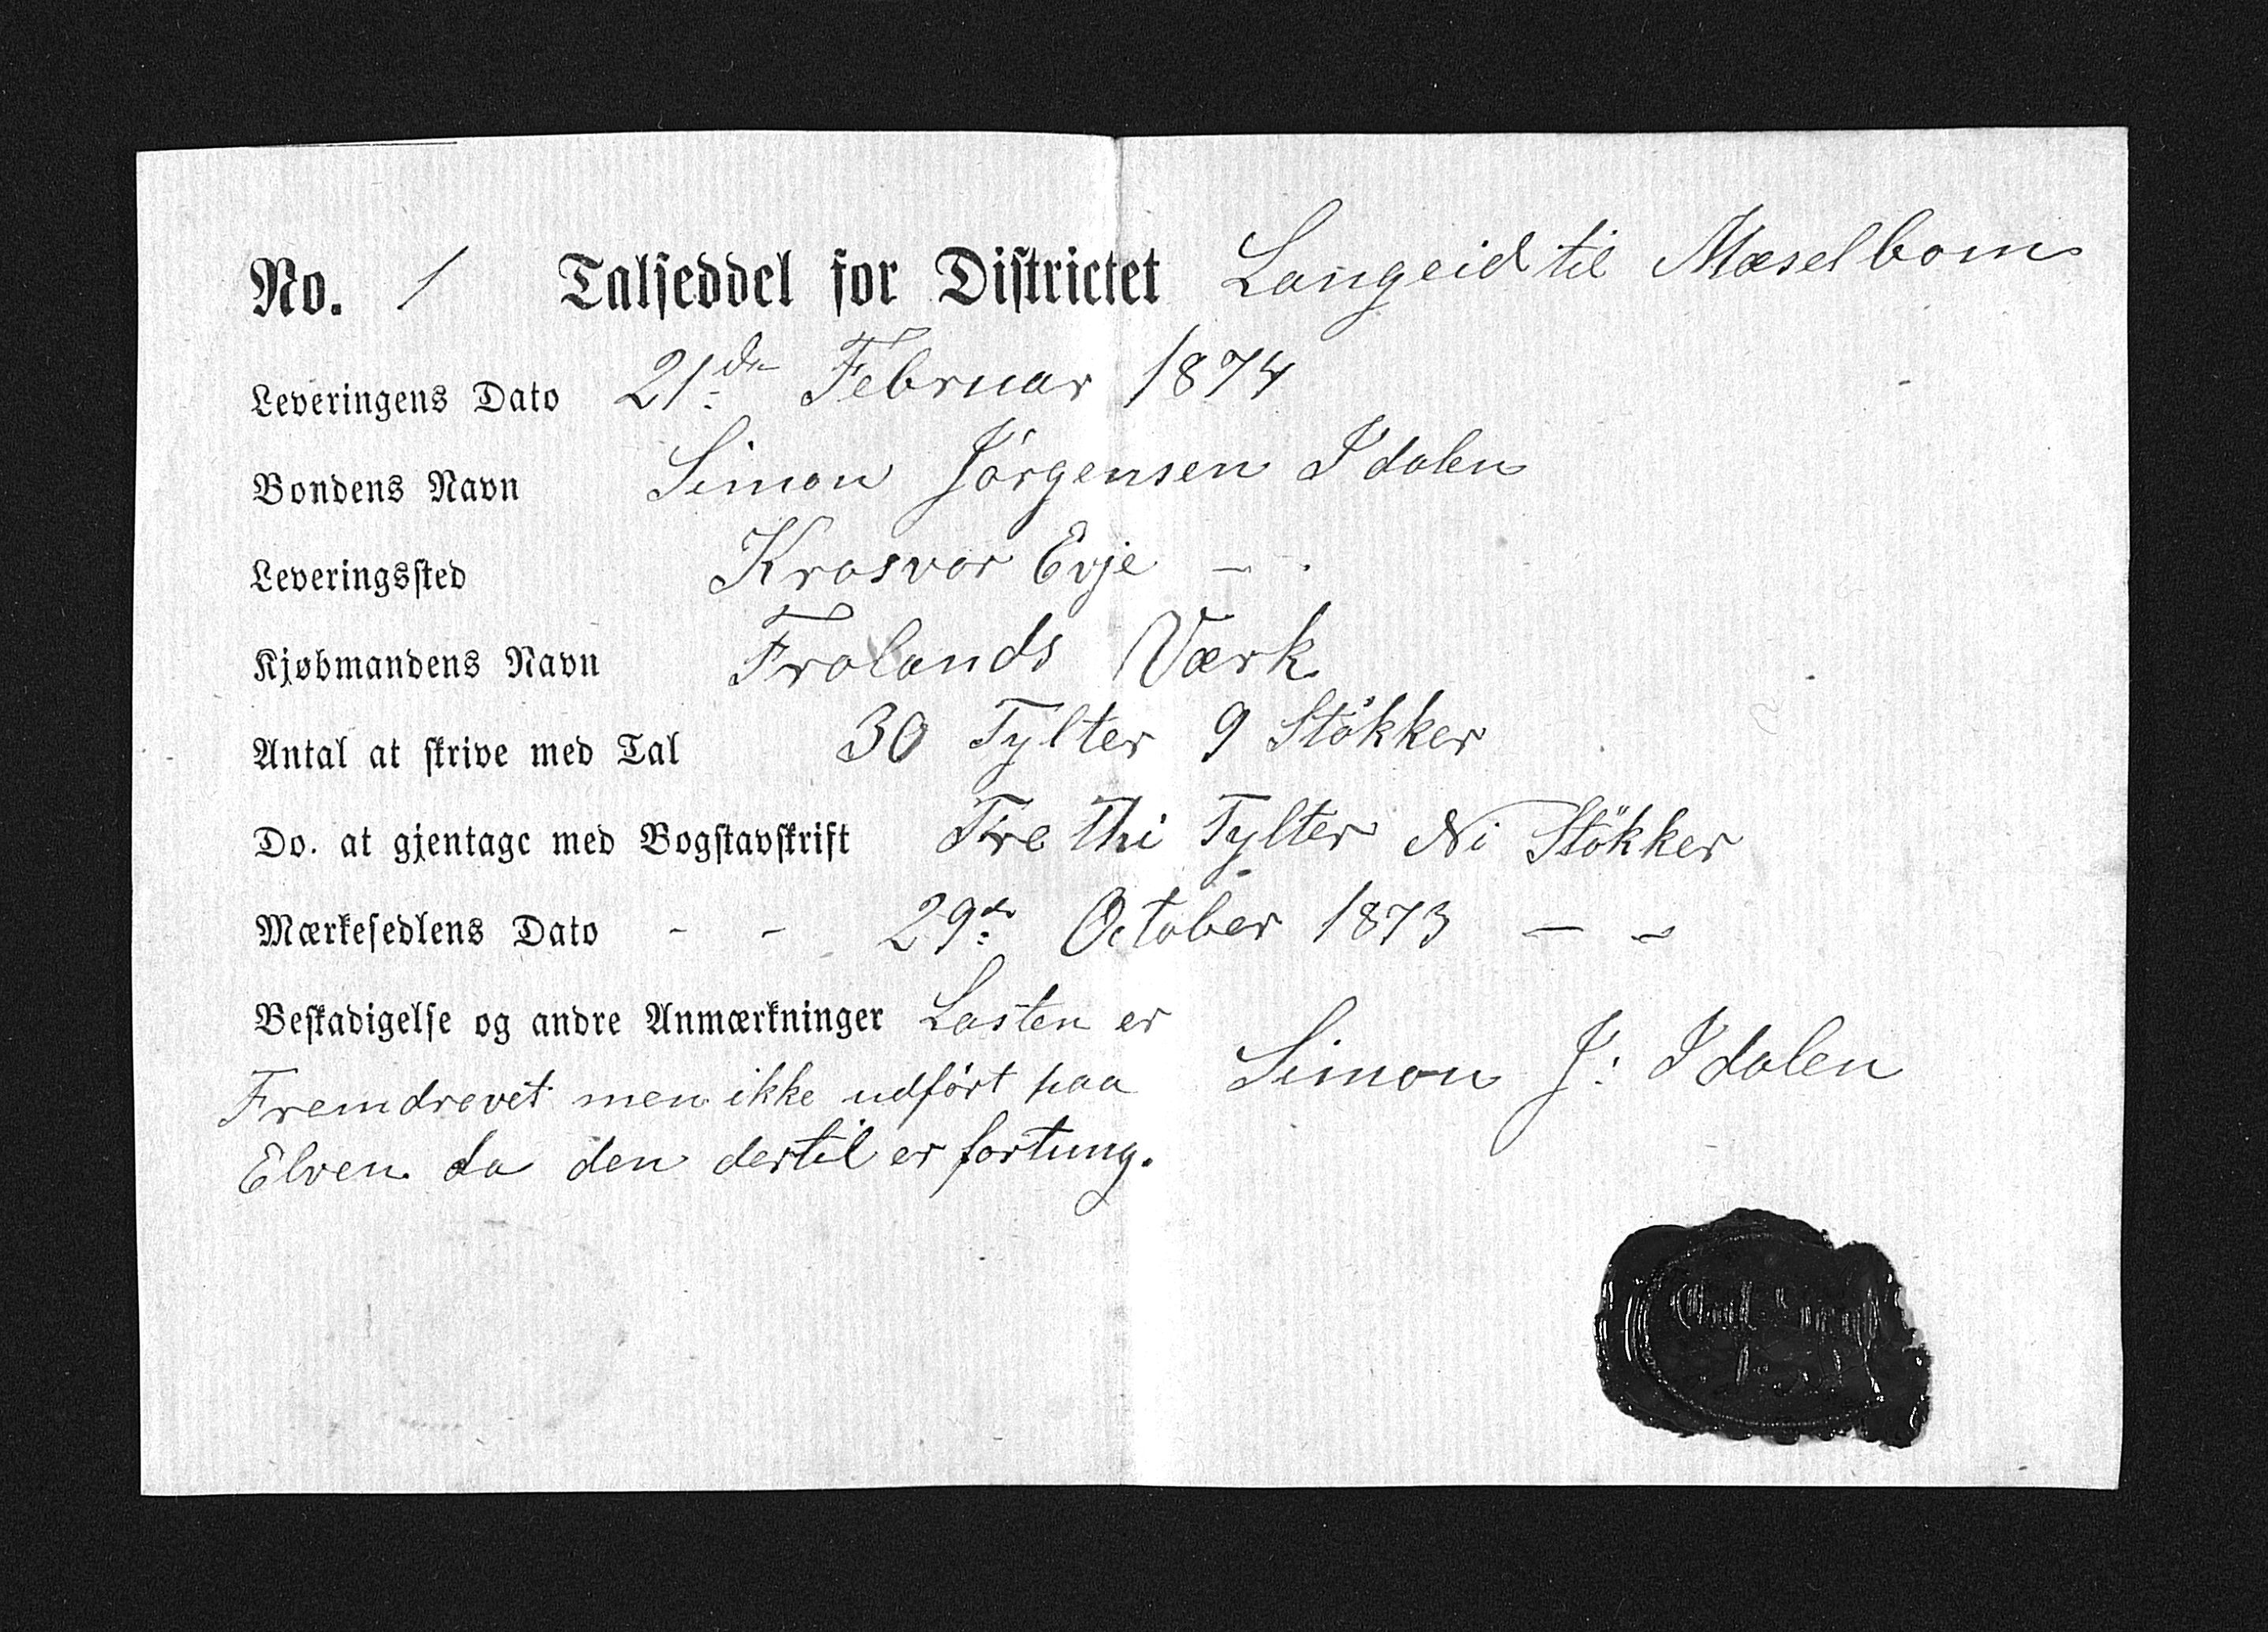 No. 1 Talseddel for Districtet Langeid til Mæselbom
Leveringens Dato 21de Februar 1874
Bondens Navn Simon Jörgensen Idalen
Leveringssted Krosvar Evje - .
Kjøbmandens Navn Frolands Værk
Antal at skrive med Tal 30 Tylter 9 Stökker
Do. at gjentage med Bogstavskrift Tre Thi Tylter Ni Stökker
Mærkesedlens Dato - - 29de October 1873 - -
Beskadigelse og andre Anmærkninger Lasten er
Fremdrevet men ikke udfört paa
Elven da den dertil er fortung.
Simon J: Idalen